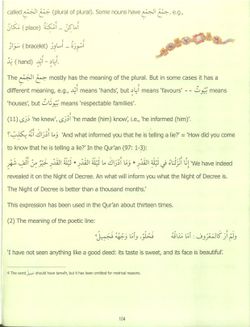 called جَمْعُ الْجَمْعِ (plural of plural). Some nouns have جَمْعُ الْجَمْعِ, e.g.,
مَكَانٌ (place) أَمْكِنَةٌ - أَمَاكِنُ.
سِوَارٌ (bracelet) أَسْوِرَةٌ - أَسَاوِرُ.
يَدٌ (hand) أَيْدٍ - أَيَادٍ.
The جَمْعُ الْجَمْعِ mostly has the meaning of the plural. But in some cases it has a
different meaning, e.g., أَيْدٍ means 'hands', but أَيَادٍ means 'favours' -- بُيُوتٌ means
'houses', but بُيُوتَاتٌ means 'respectable families'.
(11) دَرَى 'he knew', أَدْرَى 'he made (him) know', i.e., 'he informed (him)'.
وَمَا أَدْرَاكَ أَنَّهُ يَكْذِبُ؟ 'And what informed you that he is telling a lie?' = 'How did you come
to know that he is telling a lie?' In the Qur'an (97: 1-3):
إِنَّا أَنْزَلْنَاهُ فِي لَيْلَةِ الْقَدْرِ • وَمَا أَدْرَاكَ مَا لَيْلَةُ الْقَدْرِ • لَيْلَةُ الْقَدْرِ خَيْرٌ مِنْ أَلْفِ شَهْرٍ 'We have indeed
revealed it on the Night of Decree. An what will inform you what the Night of Decree is.
The Night of Decree is better than a thousand months.'
This expression has been used in the Qur'an about thirteen times.
(2) The meaning of the poetic line:
وَلَمْ أَرَ كَالْمَعْرُوفِ: أَمَّا مَذَاقُهُ فَحُلْوٌ، وَأَمَّا وَجْهُهُ فَجَمِيلُ
'I have not seen anything like a good deed: its taste is sweet, and its face is beautiful'.
should have tanwīn, but it has been omitted for metrical reasons.
104